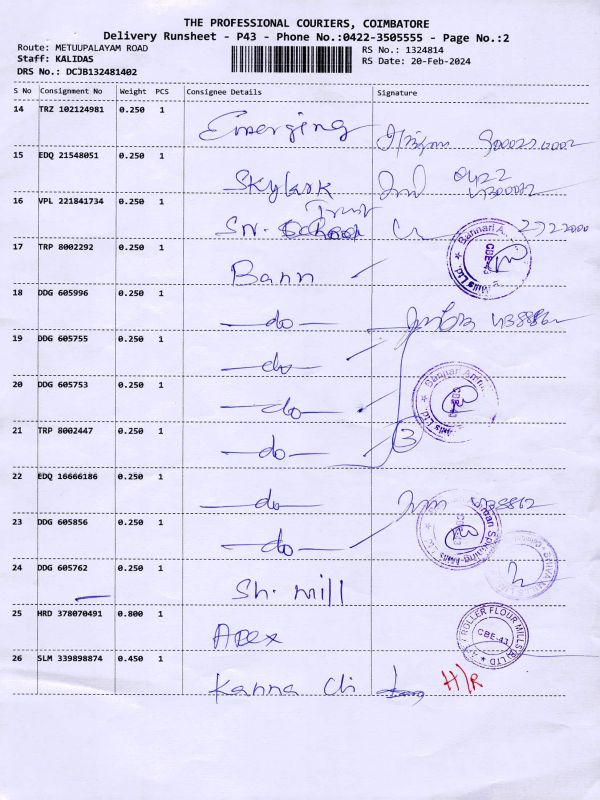 THE PROFESSIONAL COURIERS, COIMBATORE
Delivery Runsheet - P43 - Phone No.:0422-3505555 - Page No.:2
Route: METUUPALAYAM ROAD
Staff: KALIDAS
DRS No.: DCJB132481402
RS No.: 1324814
RS Date: 20-Feb-2024
S No Consignment No Weight PCS Consignee Details Signature
14 TRZ 102124981 0.250 1 Emerging
15 EDQ 21548051 0.250 1 Skylark 0422
16 VPL 221841734 0.250 1 Trust
Sn. School
17 TRP 8002292 0.250 1 Bann
18 DDG 605996 0.250 1 -do-
19 DDG 605755 0.250 1 -do-
20 DDG 605753 0.250 1 -do-
21 TRP 8002447 0.250 1 -do- 3
22 EDQ 16666186 0.250 1 -do-
23 DDG 605856 0.250 1 -do-
24 DDG 605762 0.250 1 Sh. mill
25 HRD 378070491 0.800 1 Apex
ROLLER FLOUR MILLS (P) LTD
CBE-43
26 SLM 339898874 0.450 1 Kanna Chi H/R